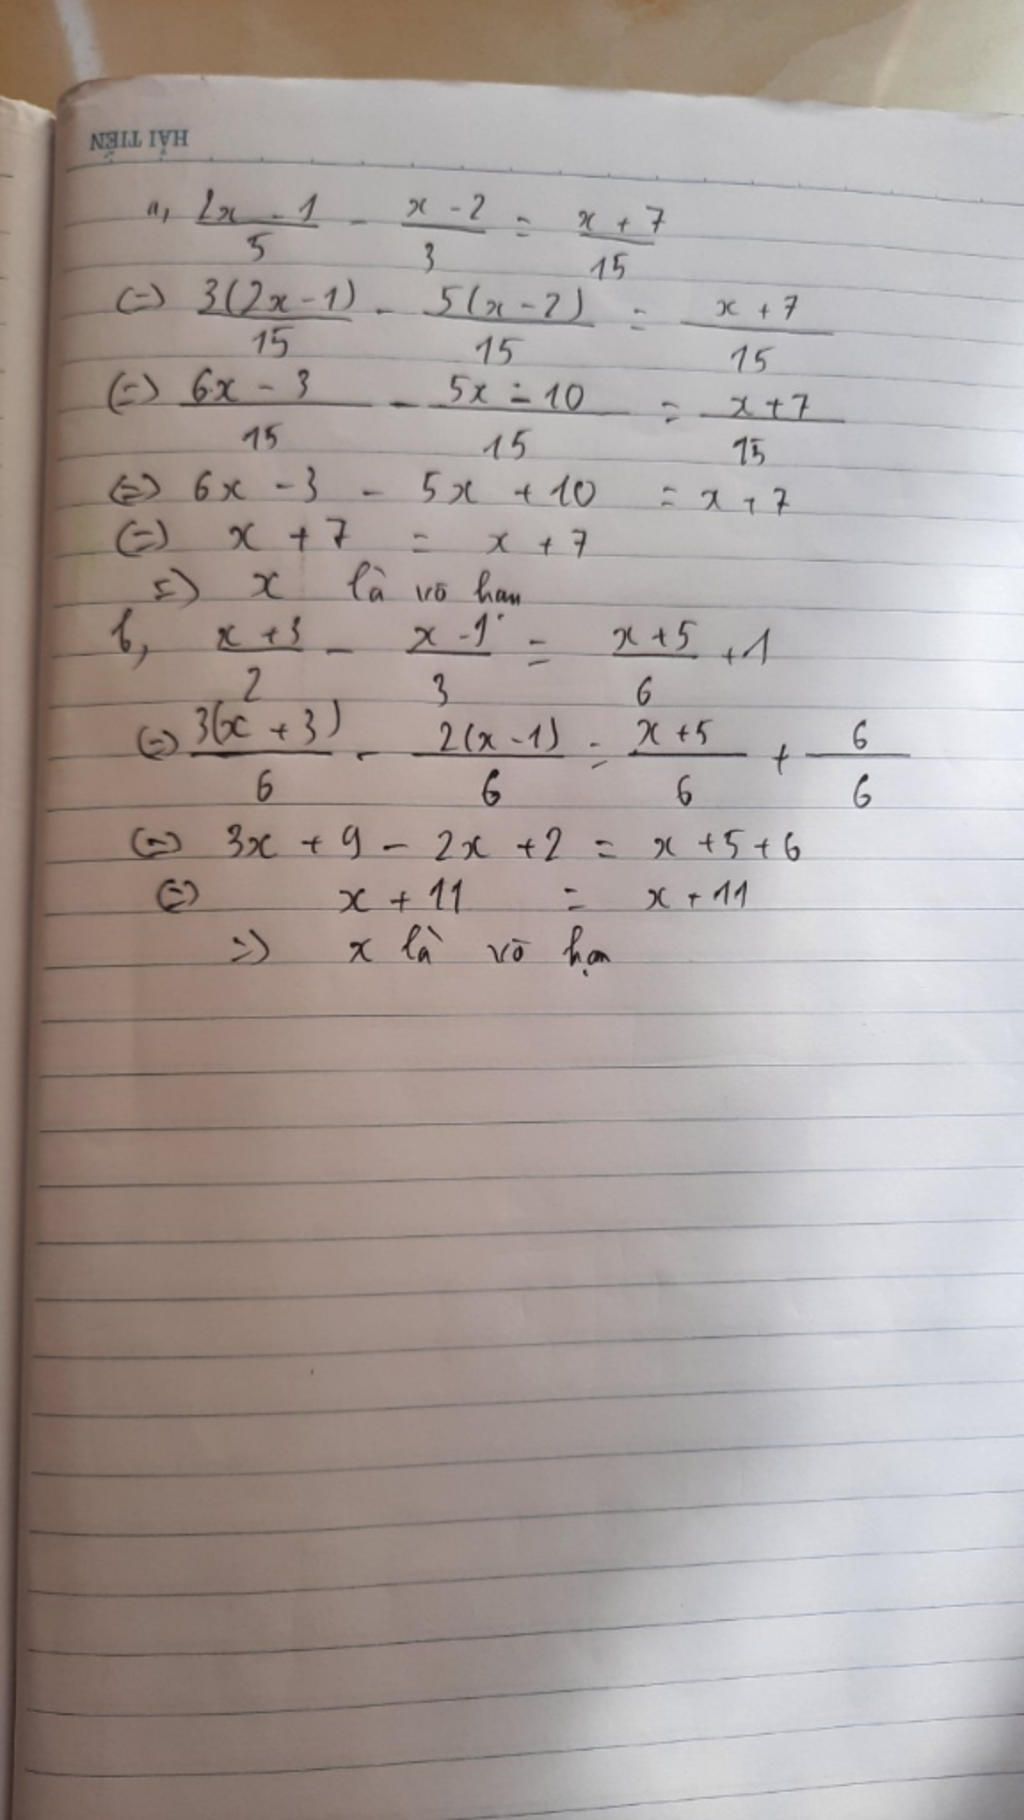 HẢI TIẾN
a, (2x - 1)/5 - (x - 2)/3 = (x + 7)/15
(=) 3(2x - 1)/15 - 5(x - 2)/15 = (x + 7)/15
(=) (6x - 3)/15 - (5x - 10)/15 = (x + 7)/15
(=) 6x - 3 - 5x + 10 = x + 7
(=) x + 7 = x + 7
=) x là vô han
b, (x + 3)/2 - (x - 1)/3 = (x + 5)/6 + 1
(=) 3(x + 3)/6 - 2(x - 1)/6 = (x + 5)/6 + 6/6
(=) 3x + 9 - 2x + 2 = x + 5 + 6
(=) x + 11 = x + 11
=) x là vô hạn